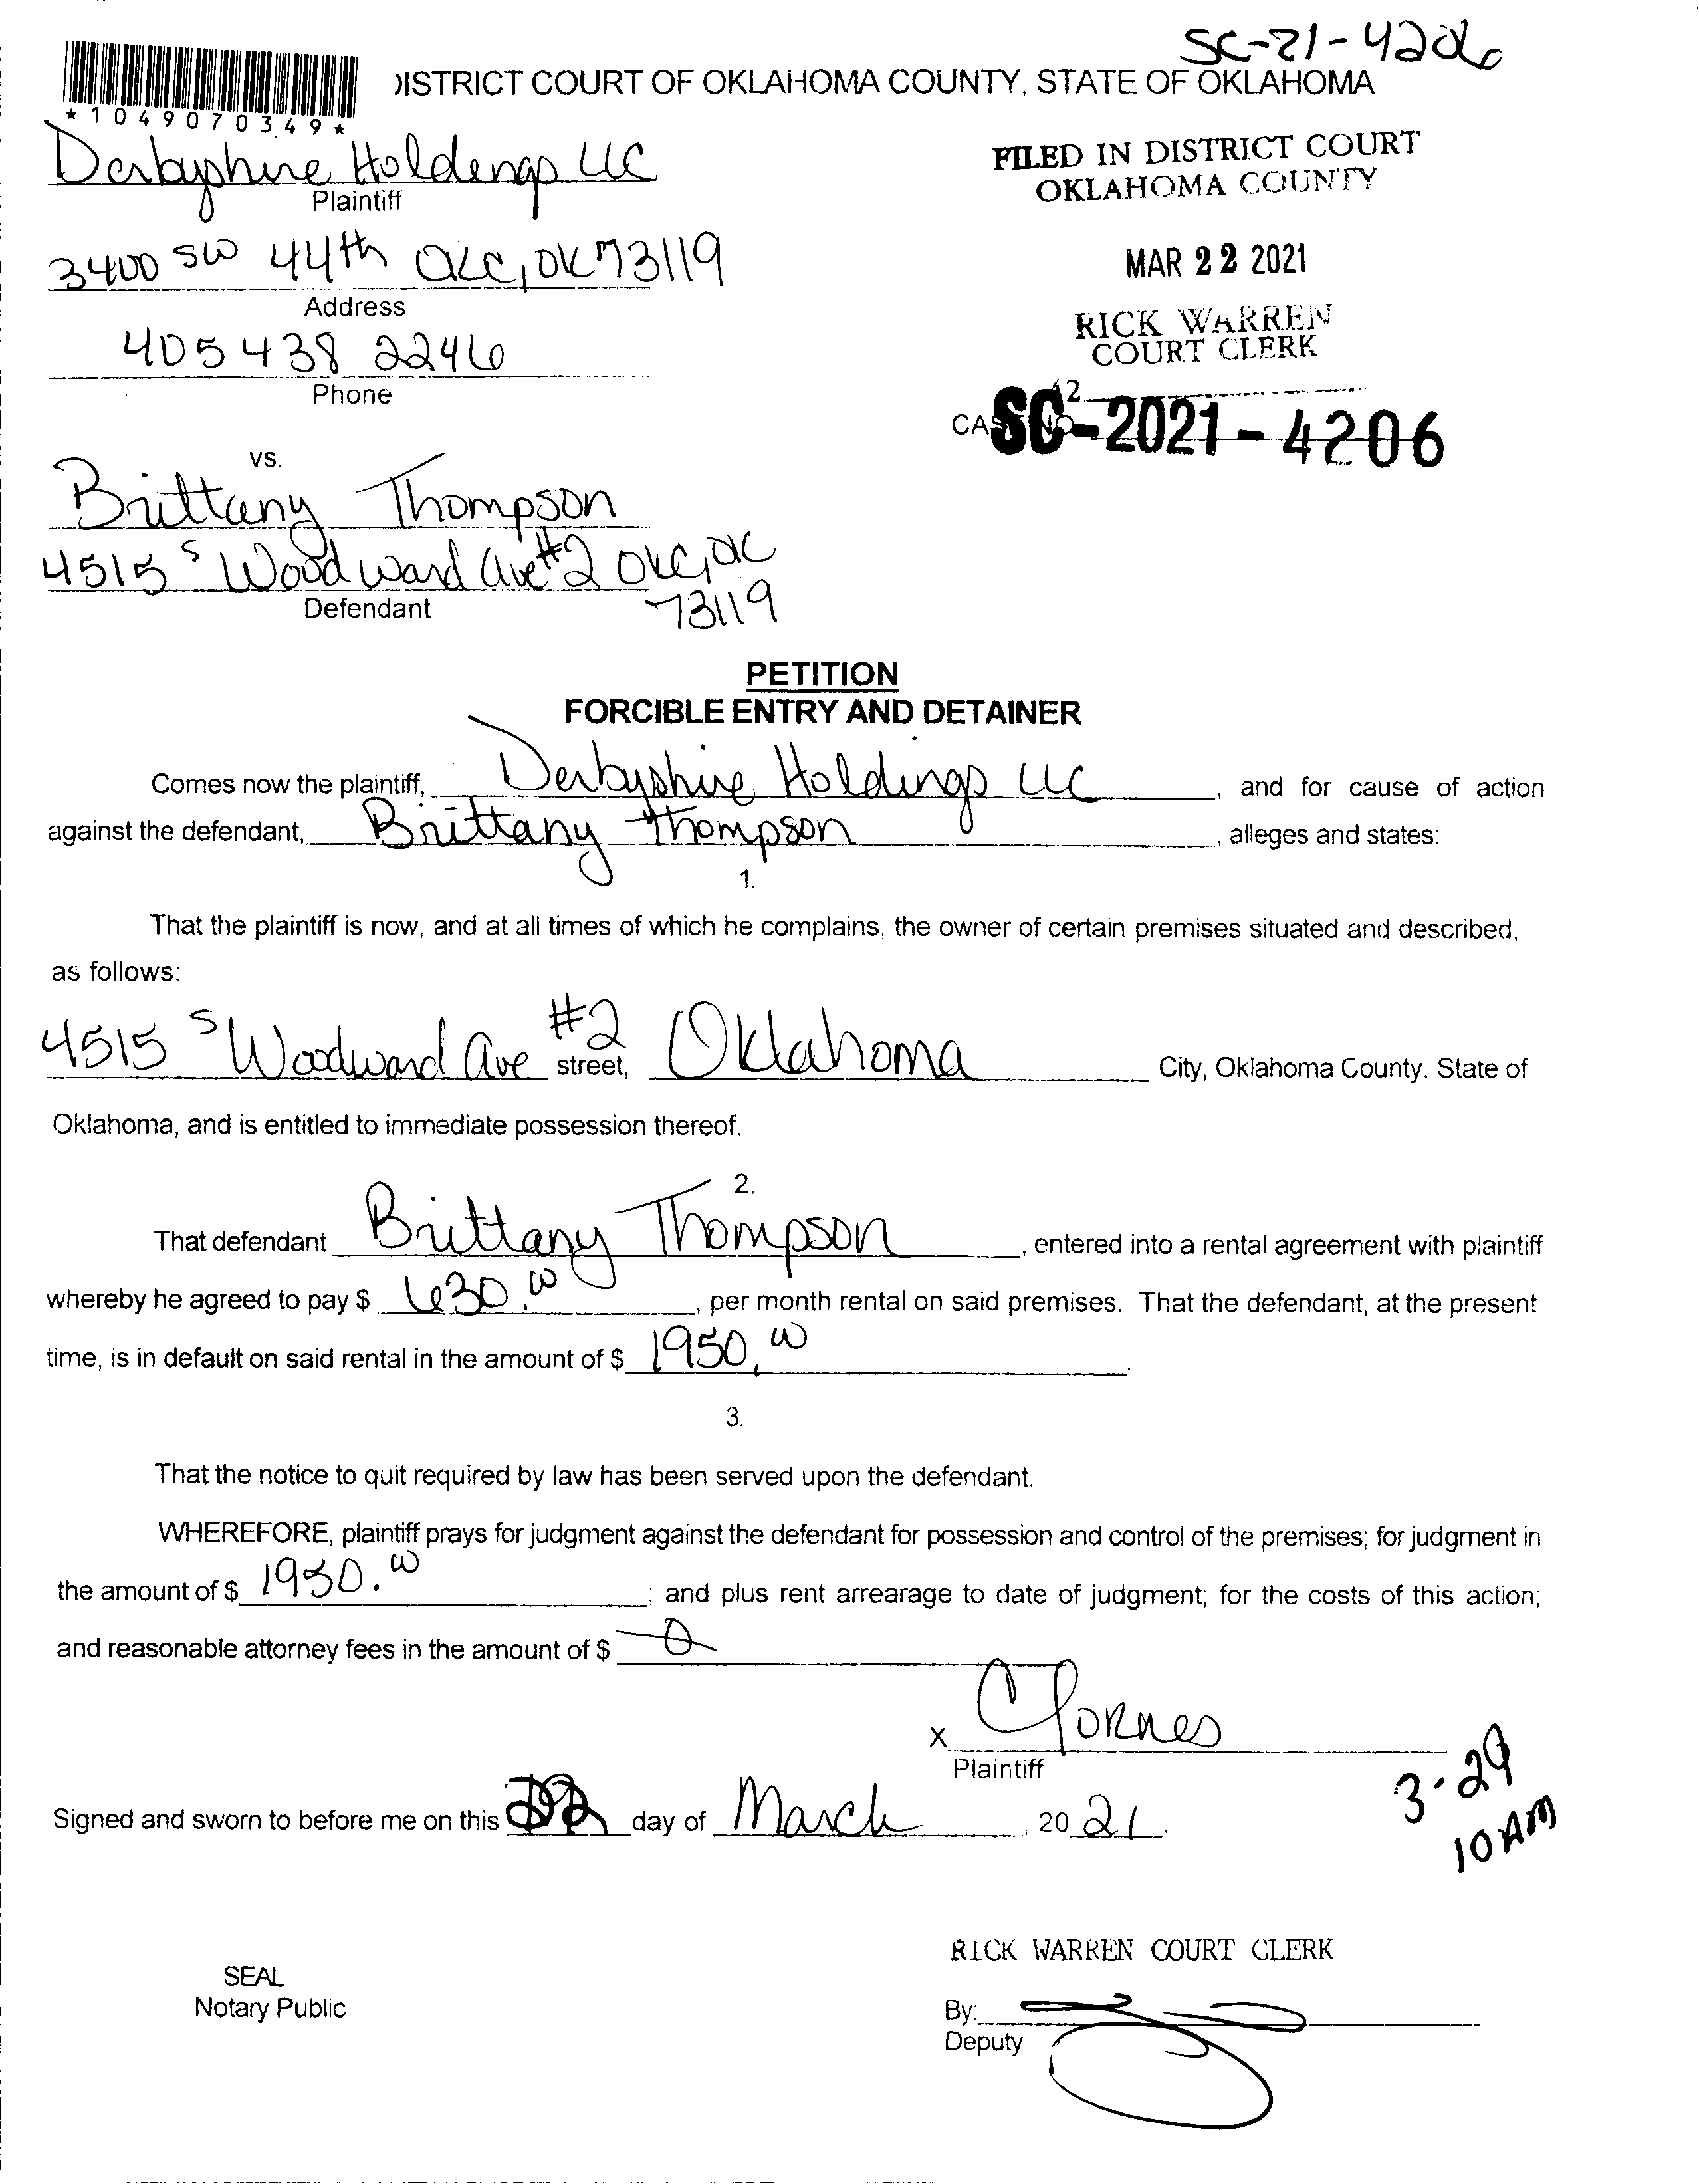 SC-21-4206
DISTRICT COURT OF OKLAHOMA COUNTY, STATE OF OKLAHOMA
*1049070349*
Derbyshire Holdings LLC
Plaintiff
FILED IN DISTRICT COURT
OKLAHOMA COUNTY
3400 SW 44th OKC, OK 73119
Address
MAR 22 2021
405 438 2246
Phone
RICK WARREN
COURT CLERK
42
CASE NO. SC-2021-4206
vs.
Brittany Thompson
4515 S Woodward Ave #2 OKC, OK
73119
Defendant
PETITION
FORCIBLE ENTRY AND DETAINER
Comes now the plaintiff, Derbyshire Holdings LLC, and for cause of action
against the defendant, Brittany Thompson, alleges and states:
1.
That the plaintiff is now, and at all times of which he complains, the owner of certain premises situated and described,
as follows:
4515 S Woodward Ave #2 street, Oklahoma City, Oklahoma County, State of
Oklahoma, and is entitled to immediate possession thereof.
2.
That defendant Brittany Thompson, entered into a rental agreement with plaintiff
whereby he agreed to pay $ 630.00, per month rental on said premises. That the defendant, at the present
time, is in default on said rental in the amount of $ 1950.00.
3.
That the notice to quit required by law has been served upon the defendant.
WHEREFORE, plaintiff prays for judgment against the defendant for possession and control of the premises; for judgment in
the amount of $ 1950.00; and plus rent arrearage to date of judgment; for the costs of this action;
and reasonable attorney fees in the amount of $ 0
x CFornes
Plaintiff
3-29
10 AM
Signed and sworn to before me on this 22 day of March, 2021.
RICK WARREN COURT CLERK
SEAL
Notary Public
By:
Deputy